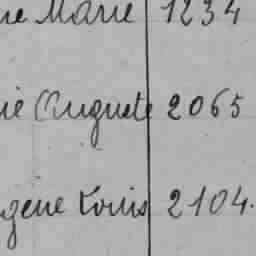 ne Marie 1234
ie Auguste 2065
gène Louis 2104.